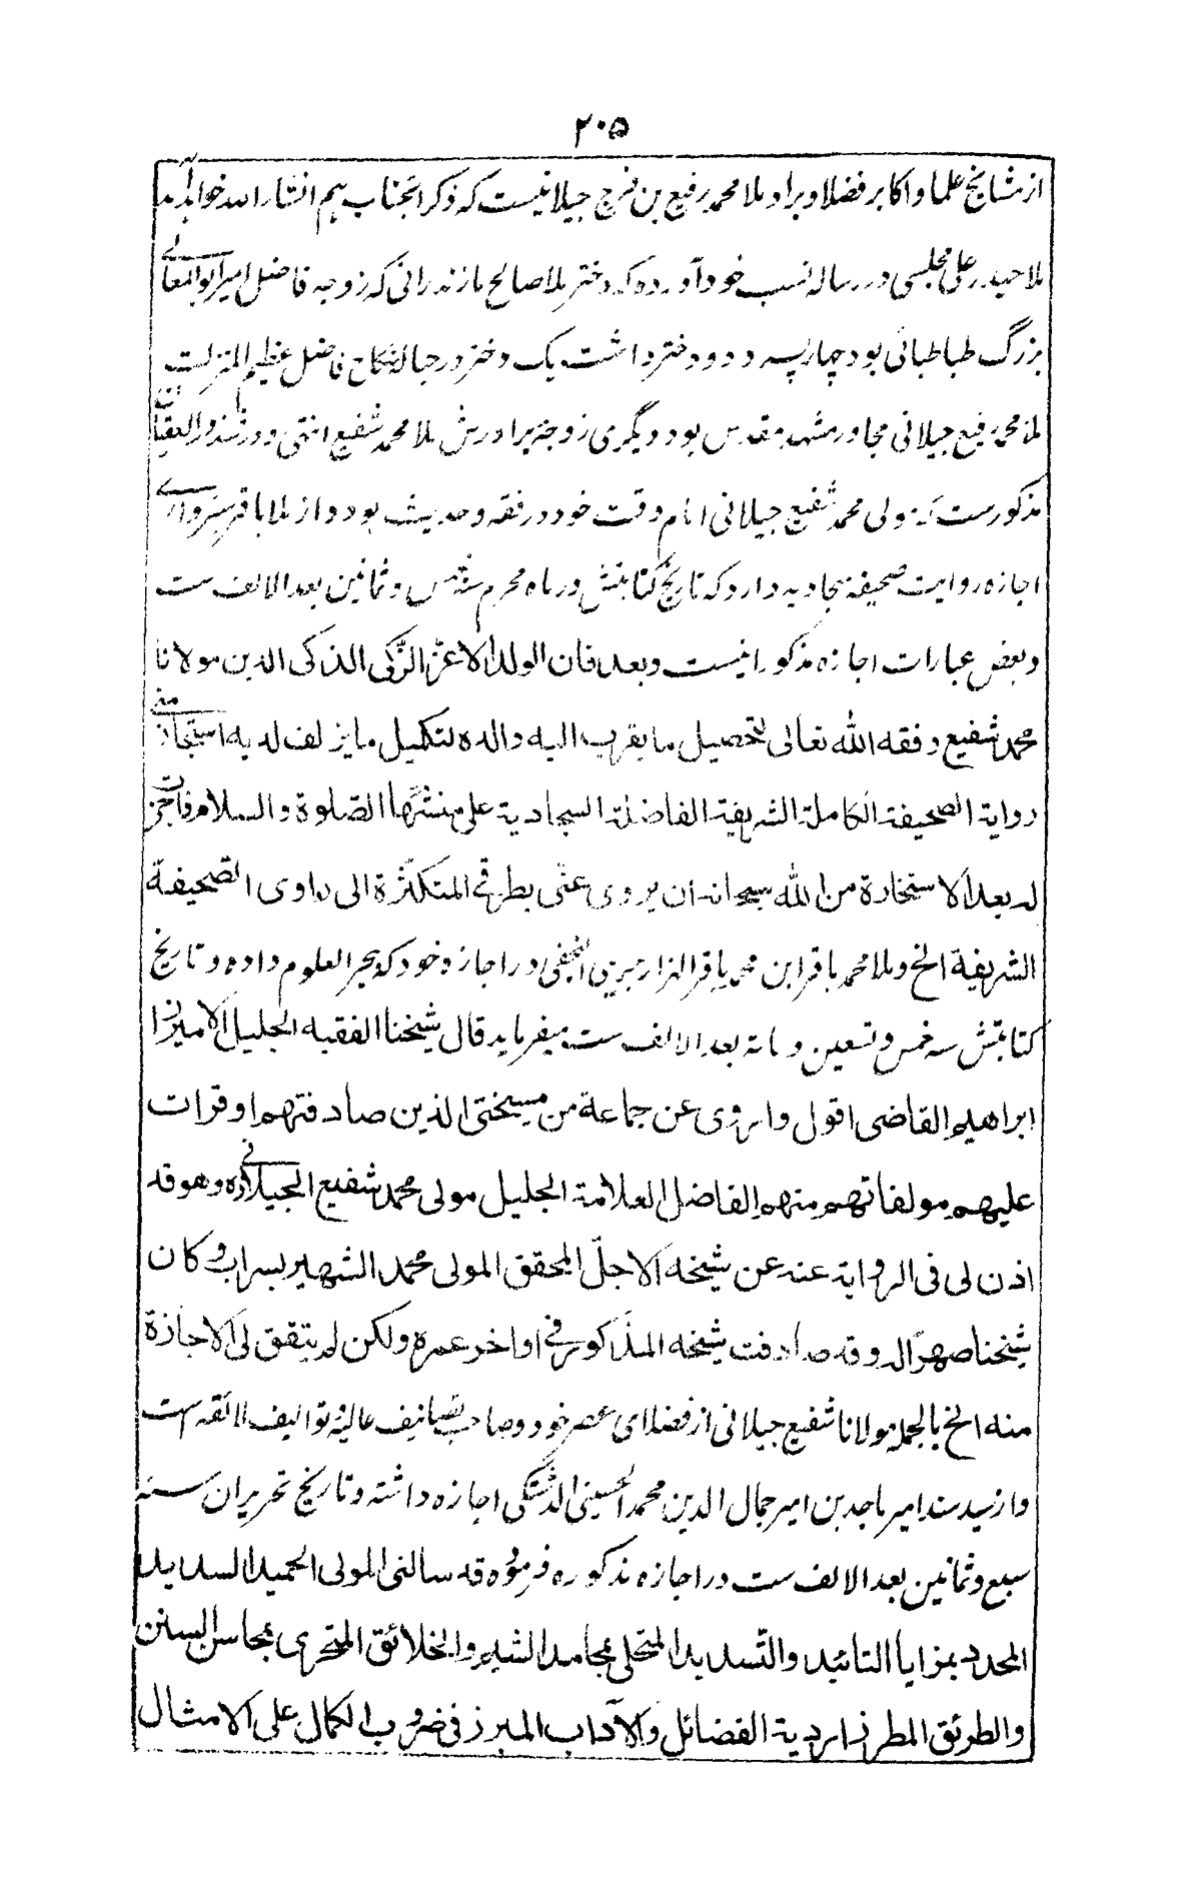 ۲۰۵
از مشایخ علما و اکابر فضلا و برادر ملا محمد رفیع بن فرج جیلانیست که ذکر آنجناب هم انشاء الله خواهد آمد
ملا حیدر علی مجلسی در رساله نسب خود آورده که دختر ملا صالح مازندرانی که زوجه فاضل امیر ابو المعالی
بزرگ طباطبائی بود چهار پسر و دو دختر داشت یک دختر در حباله نکاح فاضل عظیم المنزلت
ملا محمد رفیع جیلانی مجاور مشهد مقدس بود و دیگری زوجه برادرش ملا محمد شفیع انتهی و در شذور العقیان
مذکورست که مولی محمد شفیع جیلانی امام وقت خود در فقه و حدیث بود و از ملا باقر سبزواری
اجازه روایت صحیفه سجادیه دارد که تاریخ کتابتش در ماه محرم سنه خمس و ثمانین بعد الالف ست
و بعض عبارات اجازه مذکور اینست وبعد فان الولد الاعز الزکی الذکی الدین مولانا
محمد شفیع وفقه الله تعالی لتحصیل ما یقرب الیه والده لتکمیل ما یزلف لدیه استجاز منی
روایة الصحیفة الکاملة الشریفة الفاضلة السجادیة علی منشئها الصلوة والسلام فاجزت
له بعد الاستخارة من الله سبحانه ان یروی عنی بطرقی المتکثرة الی راوی الصحیفة
الشریفة الخ و ملا محمد باقر ابن محمد باقر الهزارجریبی النجفی در اجازه خود که ببحر العلوم داده و تاریخ
کتابتش سنه خمس و تسعین و مائة بعد الالف ست میفرماید قال شیخنا الفقیه الجلیل الامیرزا
ابراهیم القاضی اقول واروی عن جماعة من مسیختی الذین صادفتهم او قرات
علیهم مولفاتهم منهم الفاضل العلامة الجلیل مولی محمد شفیع الجیلانی ره وهو قد
اذن لی فی الروایة عنه عن شیخه الاجل المحقق المولی محمد الشهیر بسراب وکان
شیخنا صهرا له وقد صادفت شیخه المذکور فی اواخر عمره ولکن لم یتفق لی الاجازة
منه الخ بالجمله مولانا شفیع جیلانی از فضلای عصر خود و صاحب تصانیف عالیه و توالیف لائقه است
و از سید سند امیر ماجد بن امیر جمال الدین محمد الحسینی الدشتکی اجازه داشته و تاریخ تحریر ان سنه
سبع و ثمانین بعد الالف ست در اجازه مذکوره فرموده قد سالنی المولی الحمید السدید
المحدد بمزایا التائید والتسدید المتحلی بمحامد الشیم والخلائق المتحری بمحاسن السنن
والطرئق المطرز اردیة الفضائل والآداب المبرز فی ضروب الکمال علی الامثال